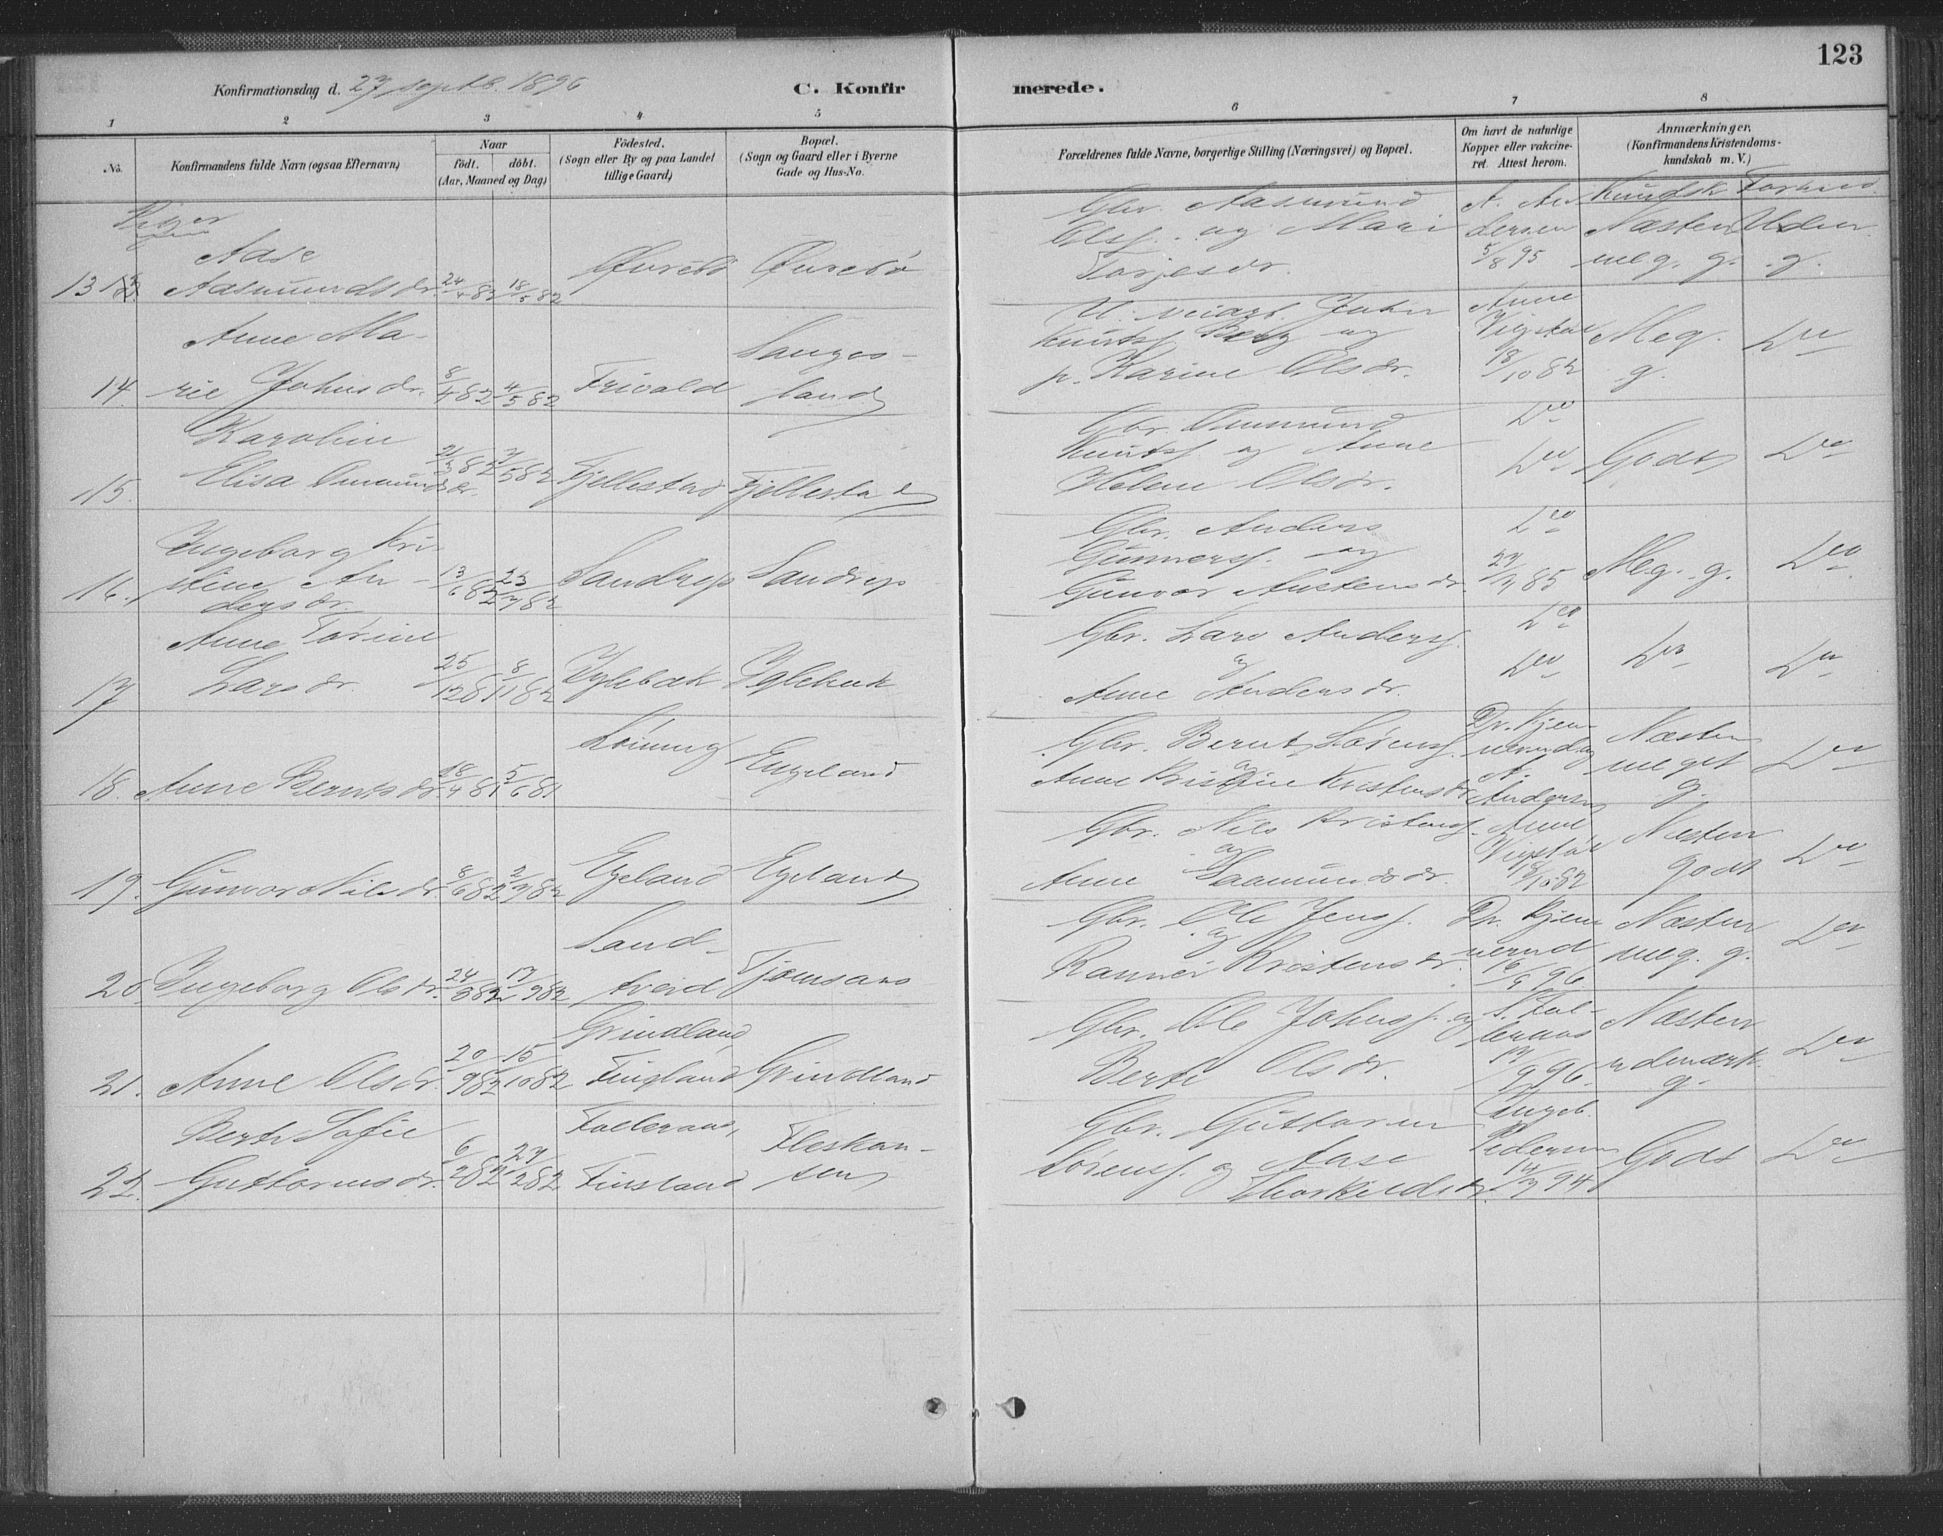 123
Konfirmationsdag d. 27 septb. 1896
C. Konfirmerede.
1 2 3 4 5 6 7 8
No.
Konfirmandens fulde Navn (ogsaa Efternavn)
Naar
födt. döbt.
(Aar, Maaned og Dag)
Födested.
(Sogn eller By og paa Landet
tillige Gaard)
Bopæl.
(Sogn og Gaard eller i Byerne
Gade og Hus-No.
Forældrenes fulde Navne, borgerlige Stilling (Næringsvei) og Bopæl.
Om havt de naturlige
Kopper eller vakcine-
ret. Attest herom.
Anmærkninger.
(Konfirmandens Kristendoms-
kundskab m. V.)
Kundsk. Forhold
Piger
13 Aase
Aasmundsdr. 24/4 82 18/5 82 Øurebø Øurebø
Gbr. Aasmund
Olss. og Mari
Torjesdr.
A. An
dersen
5/8 95
Næsten
meg. g.
Uden
g.
14. Anne Ma-
rie Johnsdr. 8/4 82 4/5 82 Trivold Lauges-
land
John
Knuts. Berg og
Karine Olsdr.
Anne
Vigstøl
18/10 82
Meg.
g.
Do
15. Karoline
Elisa Omunds
dr. 21/3 82 7/5 82 Fjellestad Fjellestad
Gbr. Ommund
Knuts. og Anne
Helene Olsdr.
Do
Do
Godt
Do
16. Ingeborg Kri
stine An-
dersdr. 13/6 82 23/7 82 Sandrip Sandrip
Gbr. Anders
Gunners. og
Gunvor Austensdr.
Do
27/7 85
Meg. g.
Do
17 Anne Torine
Larsdr. 25/12 81 8/1 82 Iglebæk Iglebæk
Gbr. Lars Anders.
og
Anne Andersdr.
Do
Do
Do
Do
18. Anne Berntsdr. 18/4 81 5/6 81 Løining Engeland
Gbr. Bernt Sørens.
og
Anne Kristine Kristensdr.
Dr. Kjen
nerud og
A.
Anders
Næsten
meget
g.
Do
19. Gunvor Nilsdr. 8/6 82 2/7 82 Egeland Egeland
Gbr. Nils Kristens.
og
Anne Saamundsdr.
Anne
Vigstøl
18/10 82
Næsten
godt
Do
20. Ingeborg Olsdr. 24/8 82 17/9 82 Sand-
tveid Tjomsaas
Gbr. Ole Jens.
og
Rannei Kristensdr.
Dr. Kjen
nerud
16/9 96
Næsten
meg. g.
Do
21. Anne Olsdr. 20/9 82 15/10 82 Grindland
Finsland Grindland
Gbr. Ole Johns. og
Berte Olsdr.
S. Fol-
leraas
17/9 96
Næsten
udmærk.
g.
Do
22. Berte Sofie
Guttormsdr. 6/2 82 27/2 82 Folleraas,
Finsland Fleskaa-
sen
Gbr. Guttorm
Sørens. og Aase
Thorkildsdr.
Ingeb.
Pedersen
14/7 94
Godt
Do